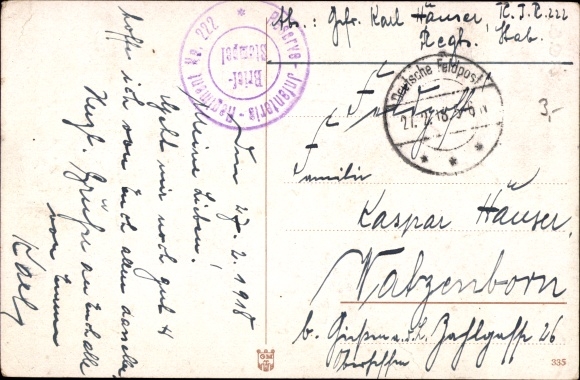 Abs.: Gefr. Karl Häuser, R.I.R. 222
Regts. Stab.
Reserve-Infanterie-Regiment No. 222
Brief-
Stempel
Deutsche Feldpost
27.2.18 5-6 N
Feldpost
3,-
Familie
Kaspar Häuser,
Watzenborn
b. Giessen a.d.L. Zahlgasse 26
Oberhessen
335
GM
Den 27.2.1918
Meine Lieben!
Geht mir noch gut &
hoffe ich von Euch allen dasselbe,
Herzl. Grüße an Euch alle
von Eurem
Karl